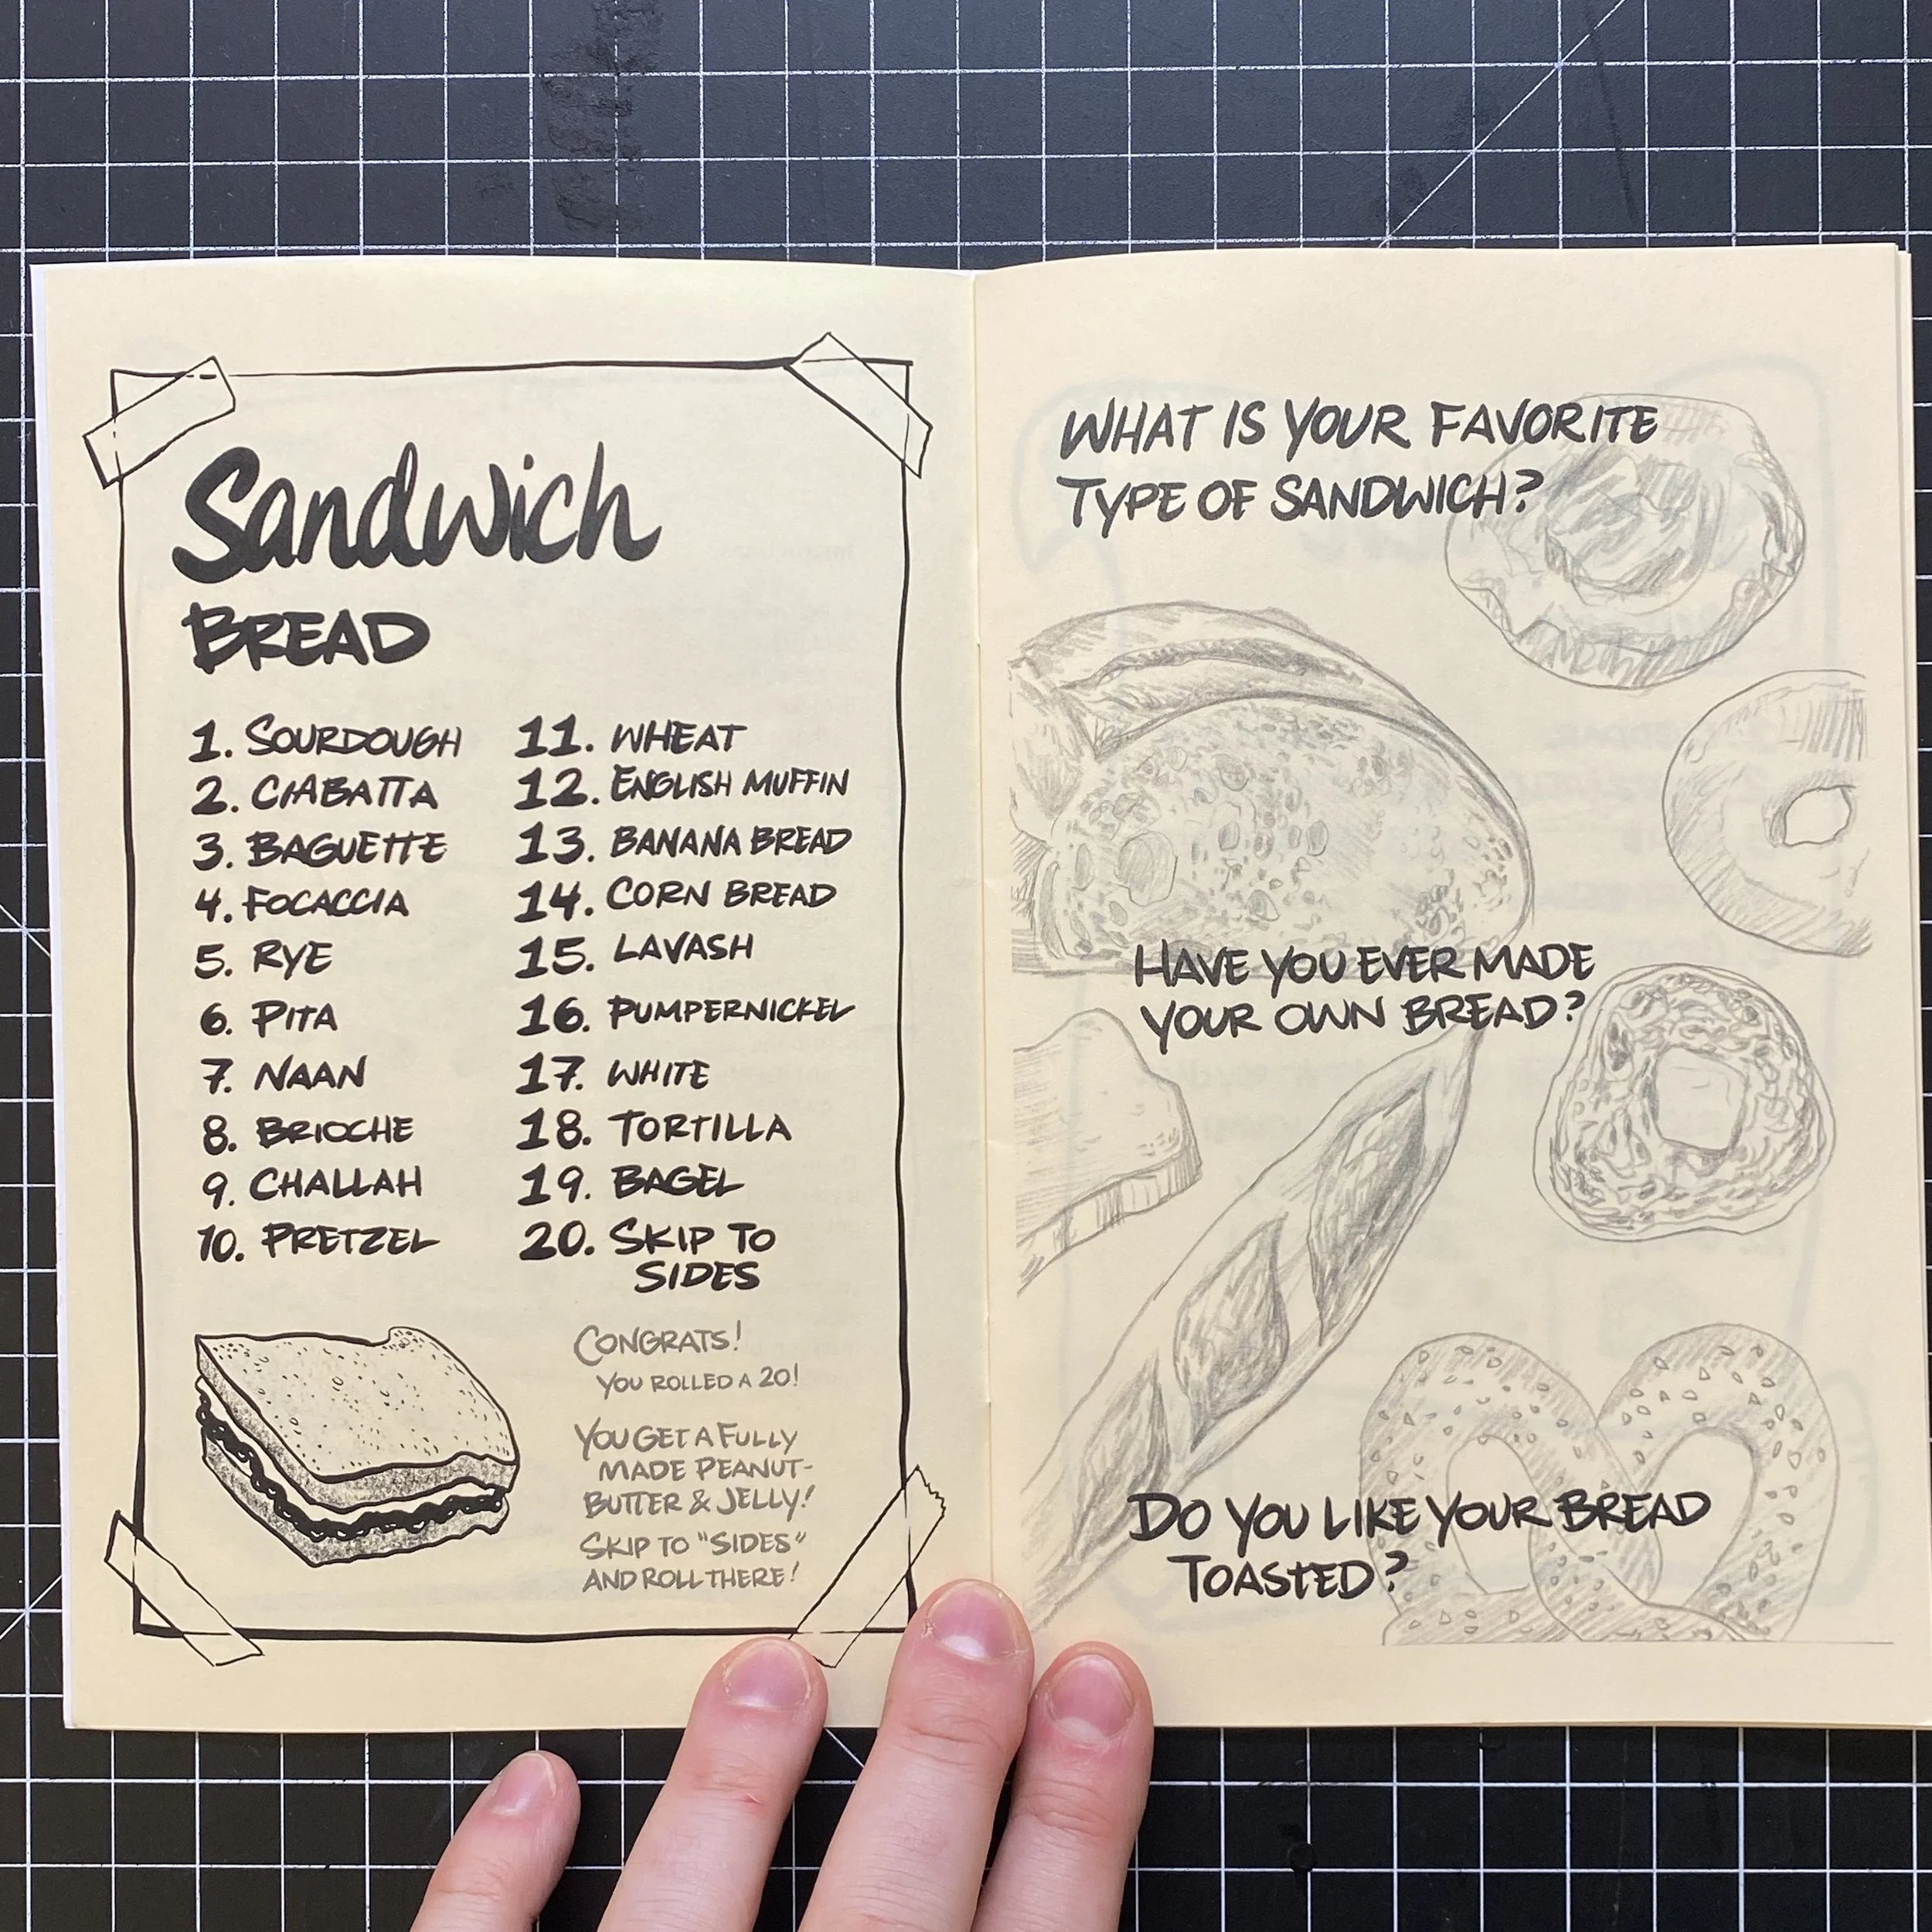 Sandwich
BREAD
1. SOURDOUGH
2. CIABATTA
3. BAGUETTE
4. FOCACCIA
5. RYE
6. PITA
7. NAAN
8. BRIOCHE
9. CHALLAH
10. PRETZEL
11. WHEAT
12. ENGLISH MUFFIN
13. BANANA BREAD
14. CORN BREAD
15. LAVASH
16. PUMPERNICKEL
17. WHITE
18. TORTILLA
19. BAGEL
20. SKIP TO
SIDES
CONGRATS!
YOU ROLLED A 20!
YOU GET A FULLY
MADE PEANUT-
BUTTER & JELLY!
SKIP TO "SIDES"
AND ROLL THERE!
WHAT IS YOUR FAVORITE
TYPE OF SANDWICH?
HAVE YOU EVER MADE
YOUR OWN BREAD?
DO YOU LIKE YOUR BREAD
TOASTED?